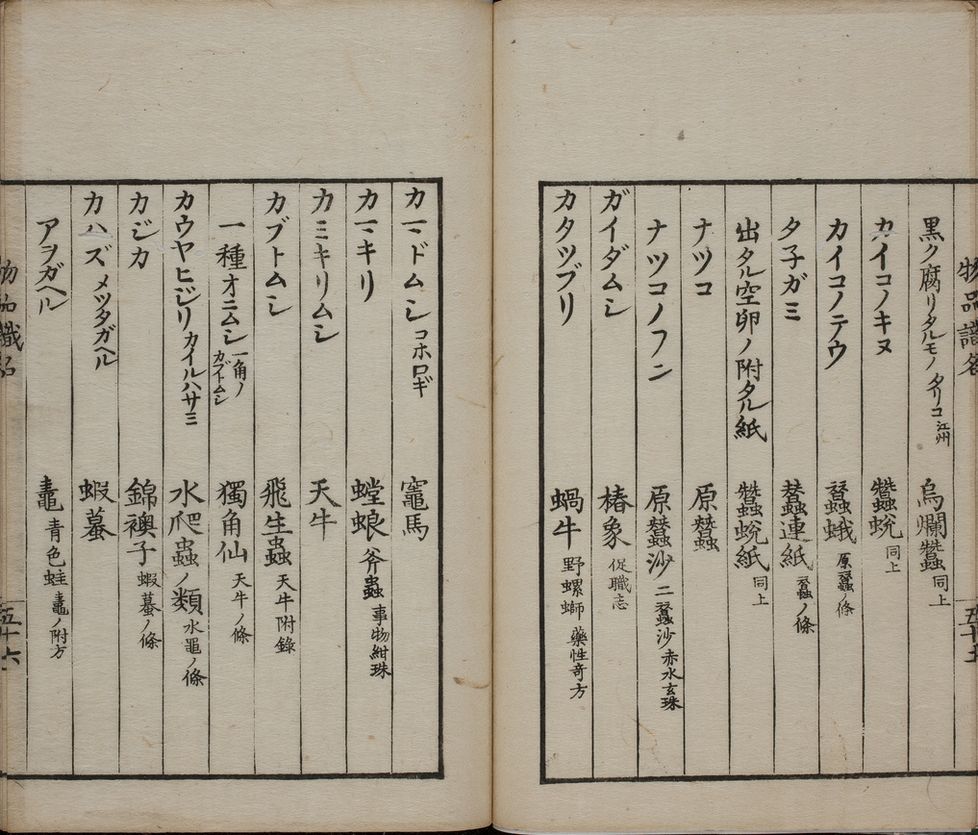 物品識名
黒ク腐リタルモノ タリコ 江州 烏爛蠶 同上
カイコノキヌ 蠶蛻 同上
カイコノテウ 蠶蛾 原蠶ノ條
タ子ガミ 蠶連紙 蠶ノ條
出タル空卵ノ附タル紙 蠶蛻紙 同上
ナツコ 原蠶
ナツコノフン 原蠶沙 二蠶沙 赤水玄珠
ガイダムシ 椿象 促職志
カタツブリ 蝸牛 野螺螄 藥性奇方
カマドムシ コホロギ 竈馬
カマキリ 螳蜋 斧蟲 事物紺珠
カミキリムシ 天牛
カブトムシ 飛生蟲 天牛附錄
一種オニムシ 一角ノカブトムシ 獨角仙 天牛ノ條
カウヤヒジリ カイルハサミ 水爬蟲ノ類 水黽ノ條
カジカ 錦襖子 蝦蟇ノ條
カハズ メツタガヘル 蝦蟇
アヲガヘル 鼃 青色蛙 鼃ノ附方
物品識名
五十六